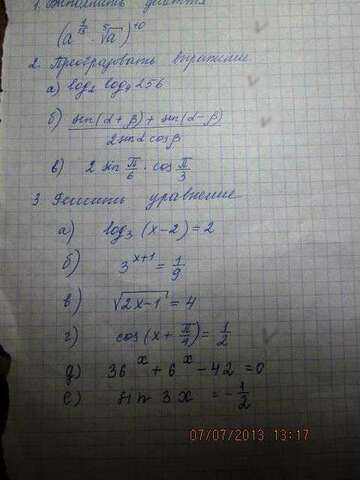 1. Выполнить действия
(a^{7/15} · ⁵√a)^{10}
2. Преобразовать выражение
а) log₂ log₄ 256
б) (sin(α+β) + sin(α-β)) / (2 sin α cos β)
в) 2 sin π/6 · cos π/3
3. Решить уравнение
а) log₃ (x-2) = 2
б) 3^{x+1} = 1/9
в) √(2x-1) = 4
г) cos(x + π/4) = 1/2
д) 36^x + 6^x - 42 = 0
е) sin 3x = -1/2
07/07/2013 13:17